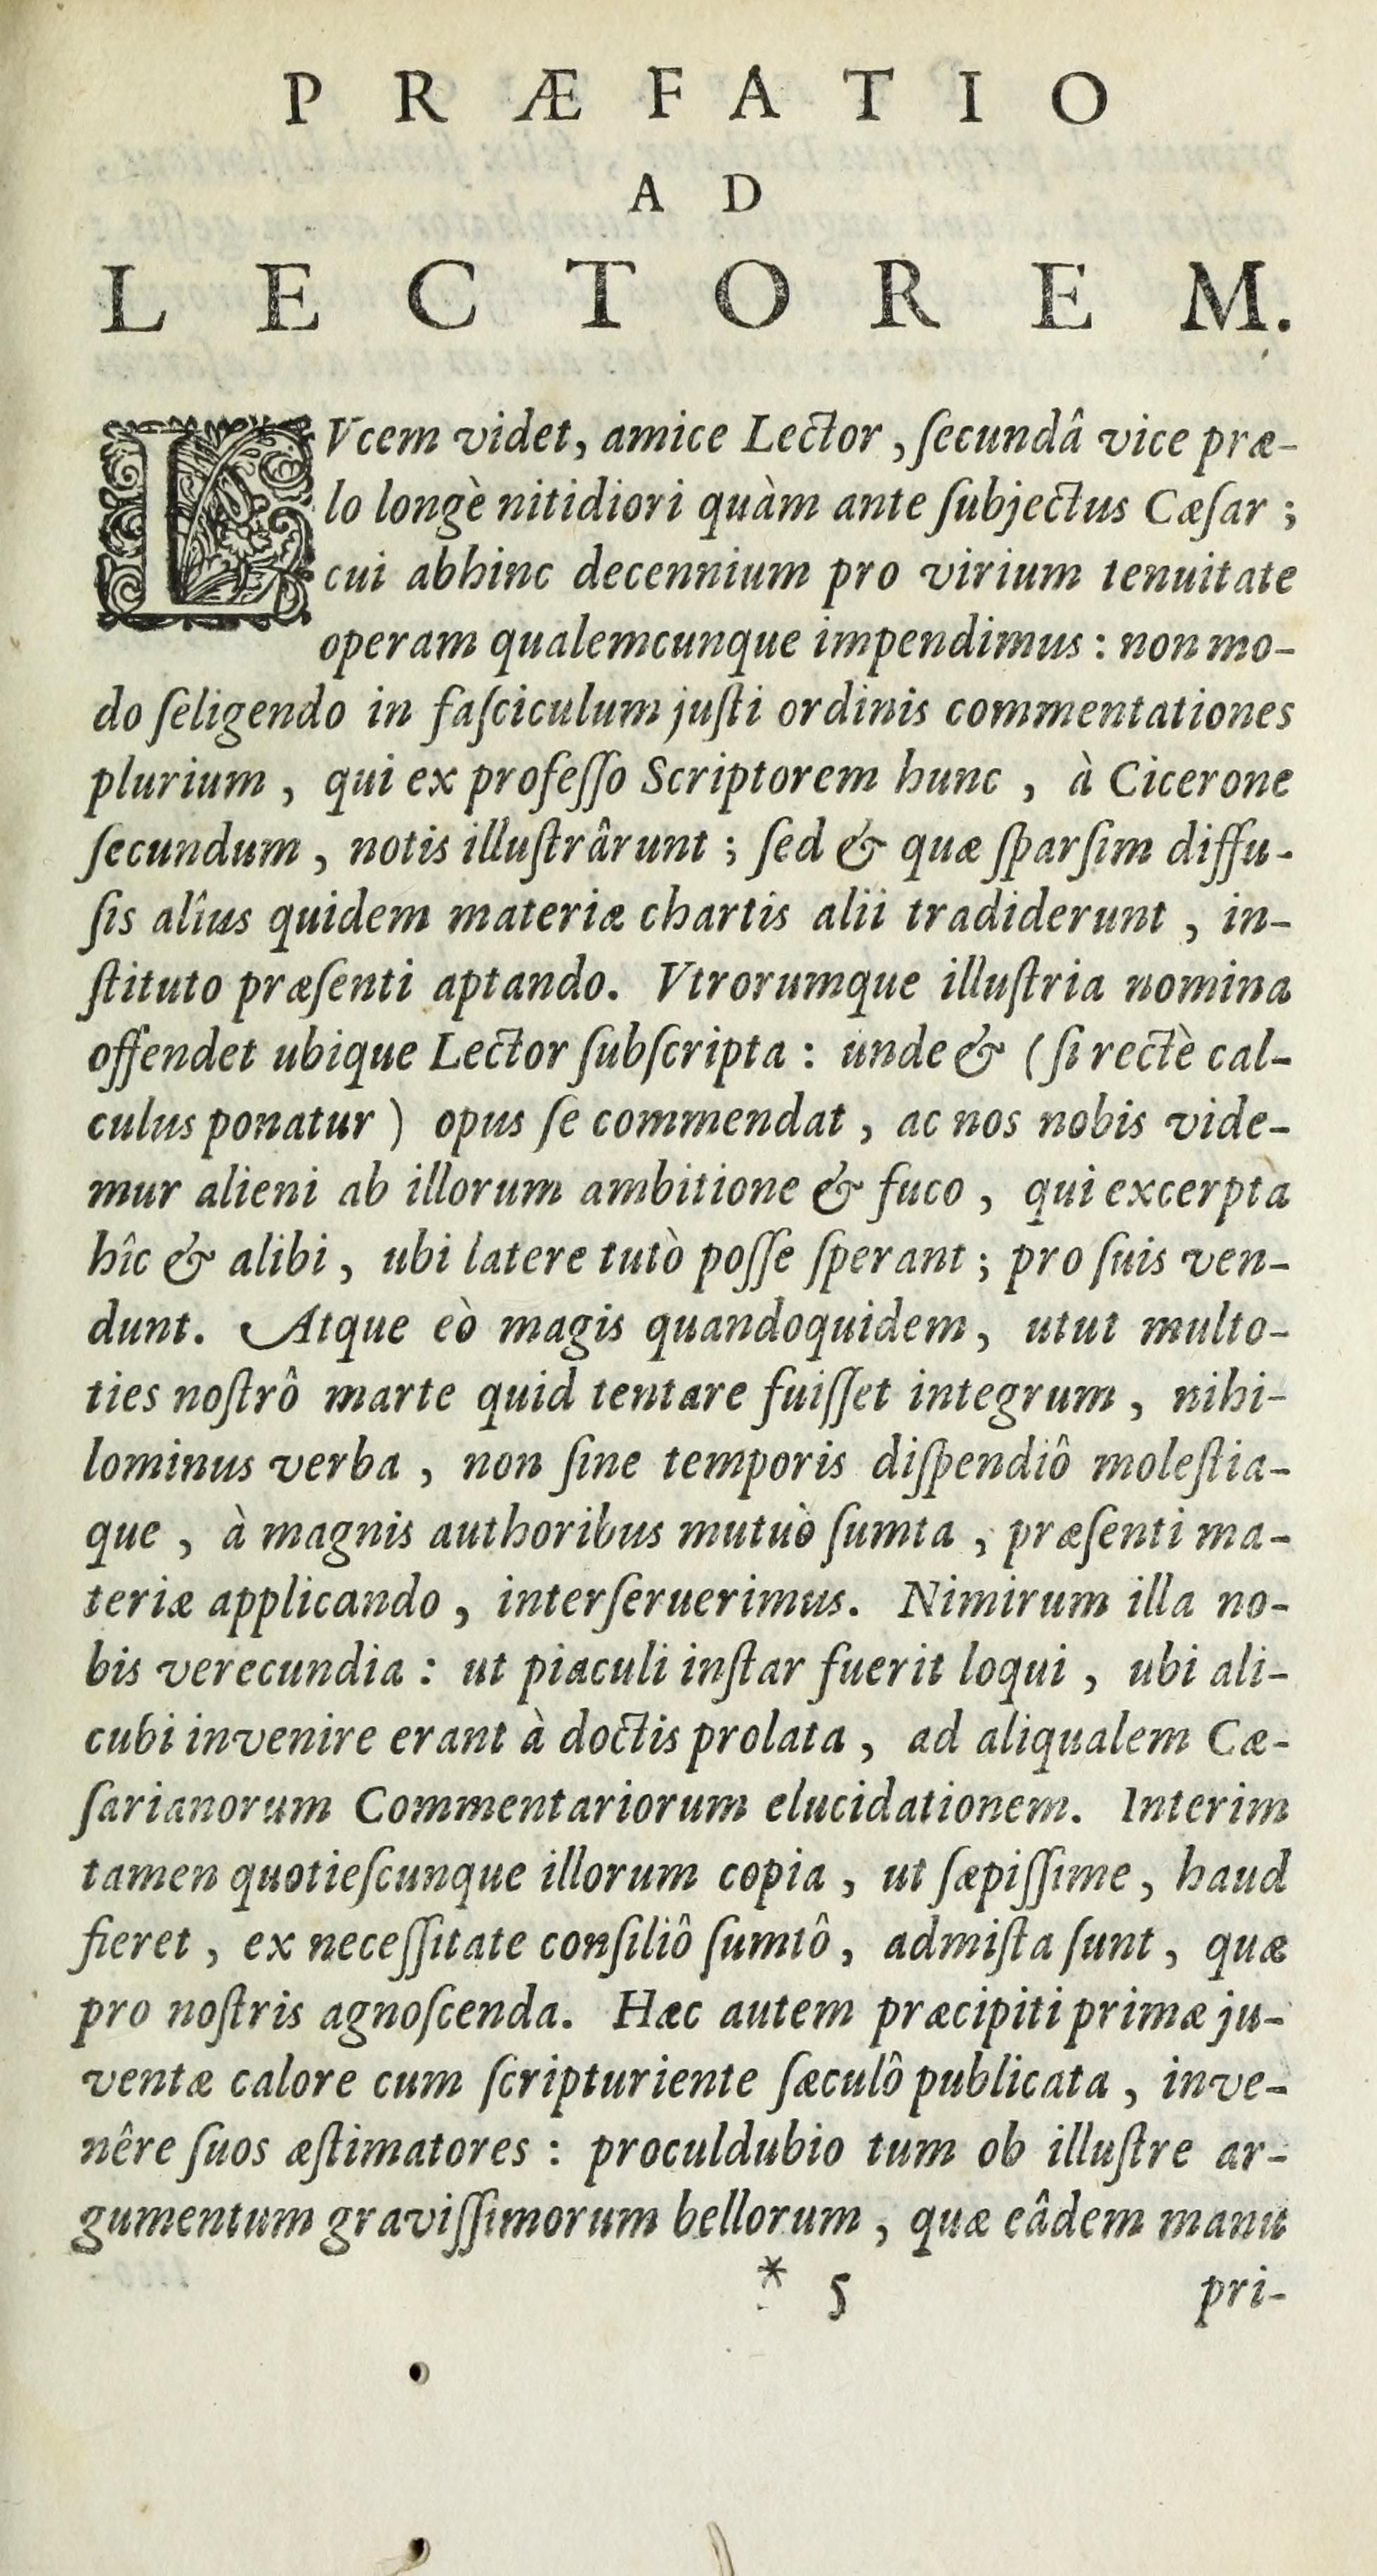 PRÆFATIO
AD
LECTOREM.
LVcem videt, amice Lector, ſecundâ vice præ-
lo longè nitidiori quàm ante ſubjectus Cæſar;
cui abhinc decennium pro virium tenuitate
operam qualemcunque impendimus: non mo-
do ſeligendo in faſciculum juſti ordinis commentationes
plurium, qui ex profeſſo Scriptorem hunc, à Cicerone
ſecundum, notis illuſtrârunt; ſed & quæ ſparſim diffu-
ſis alîus quidem materiæ chartis alii tradiderunt, in-
ſtituto præſenti aptando. Vtrorumque illuſtria nomina
offendet ubique Lector ſubſcripta: unde & (ſi rectè cal-
culus ponatur) opus ſe commendat, ac nos nobis vide-
mur alieni ab illorum ambitione & fuco, qui excerpta
hîc & alibi, ubi latere tutò poſſe ſperant; pro ſuis ven-
dunt. Atque eò magis quandoquidem, utut multo-
ties noſtrô marte quid tentare fuiſſet integrum, nihi-
lominus verba, non ſine temporis diſpendiô moleſtia-
que, à magnis authoribus mutuò ſumta, præſenti ma-
teriæ applicando, interſeruerimus. Nimirum illa no-
bis verecundia: ut piaculi inſtar fuerit loqui, ubi ali-
cubi invenire erant à doctis prolata, ad aliqualem Cæ-
ſarianorum Commentariorum elucidationem. Interim
tamen quotieſcunque illorum copia, ut ſæpiſſime, haud
fieret, ex neceſſitate conſiliô ſumtô, admiſta ſunt, quæ
pro noſtris agnoſcenda. Hæc autem præcipiti primæ ju-
ventæ calore cum ſcripturiente ſæculô publicata, inve-
nêre ſuos æſtimatores: proculdubio tum ob illuſtre ar-
gumentum graviſſimorum bellorum, quæ eâdem manu
* 5 pri-